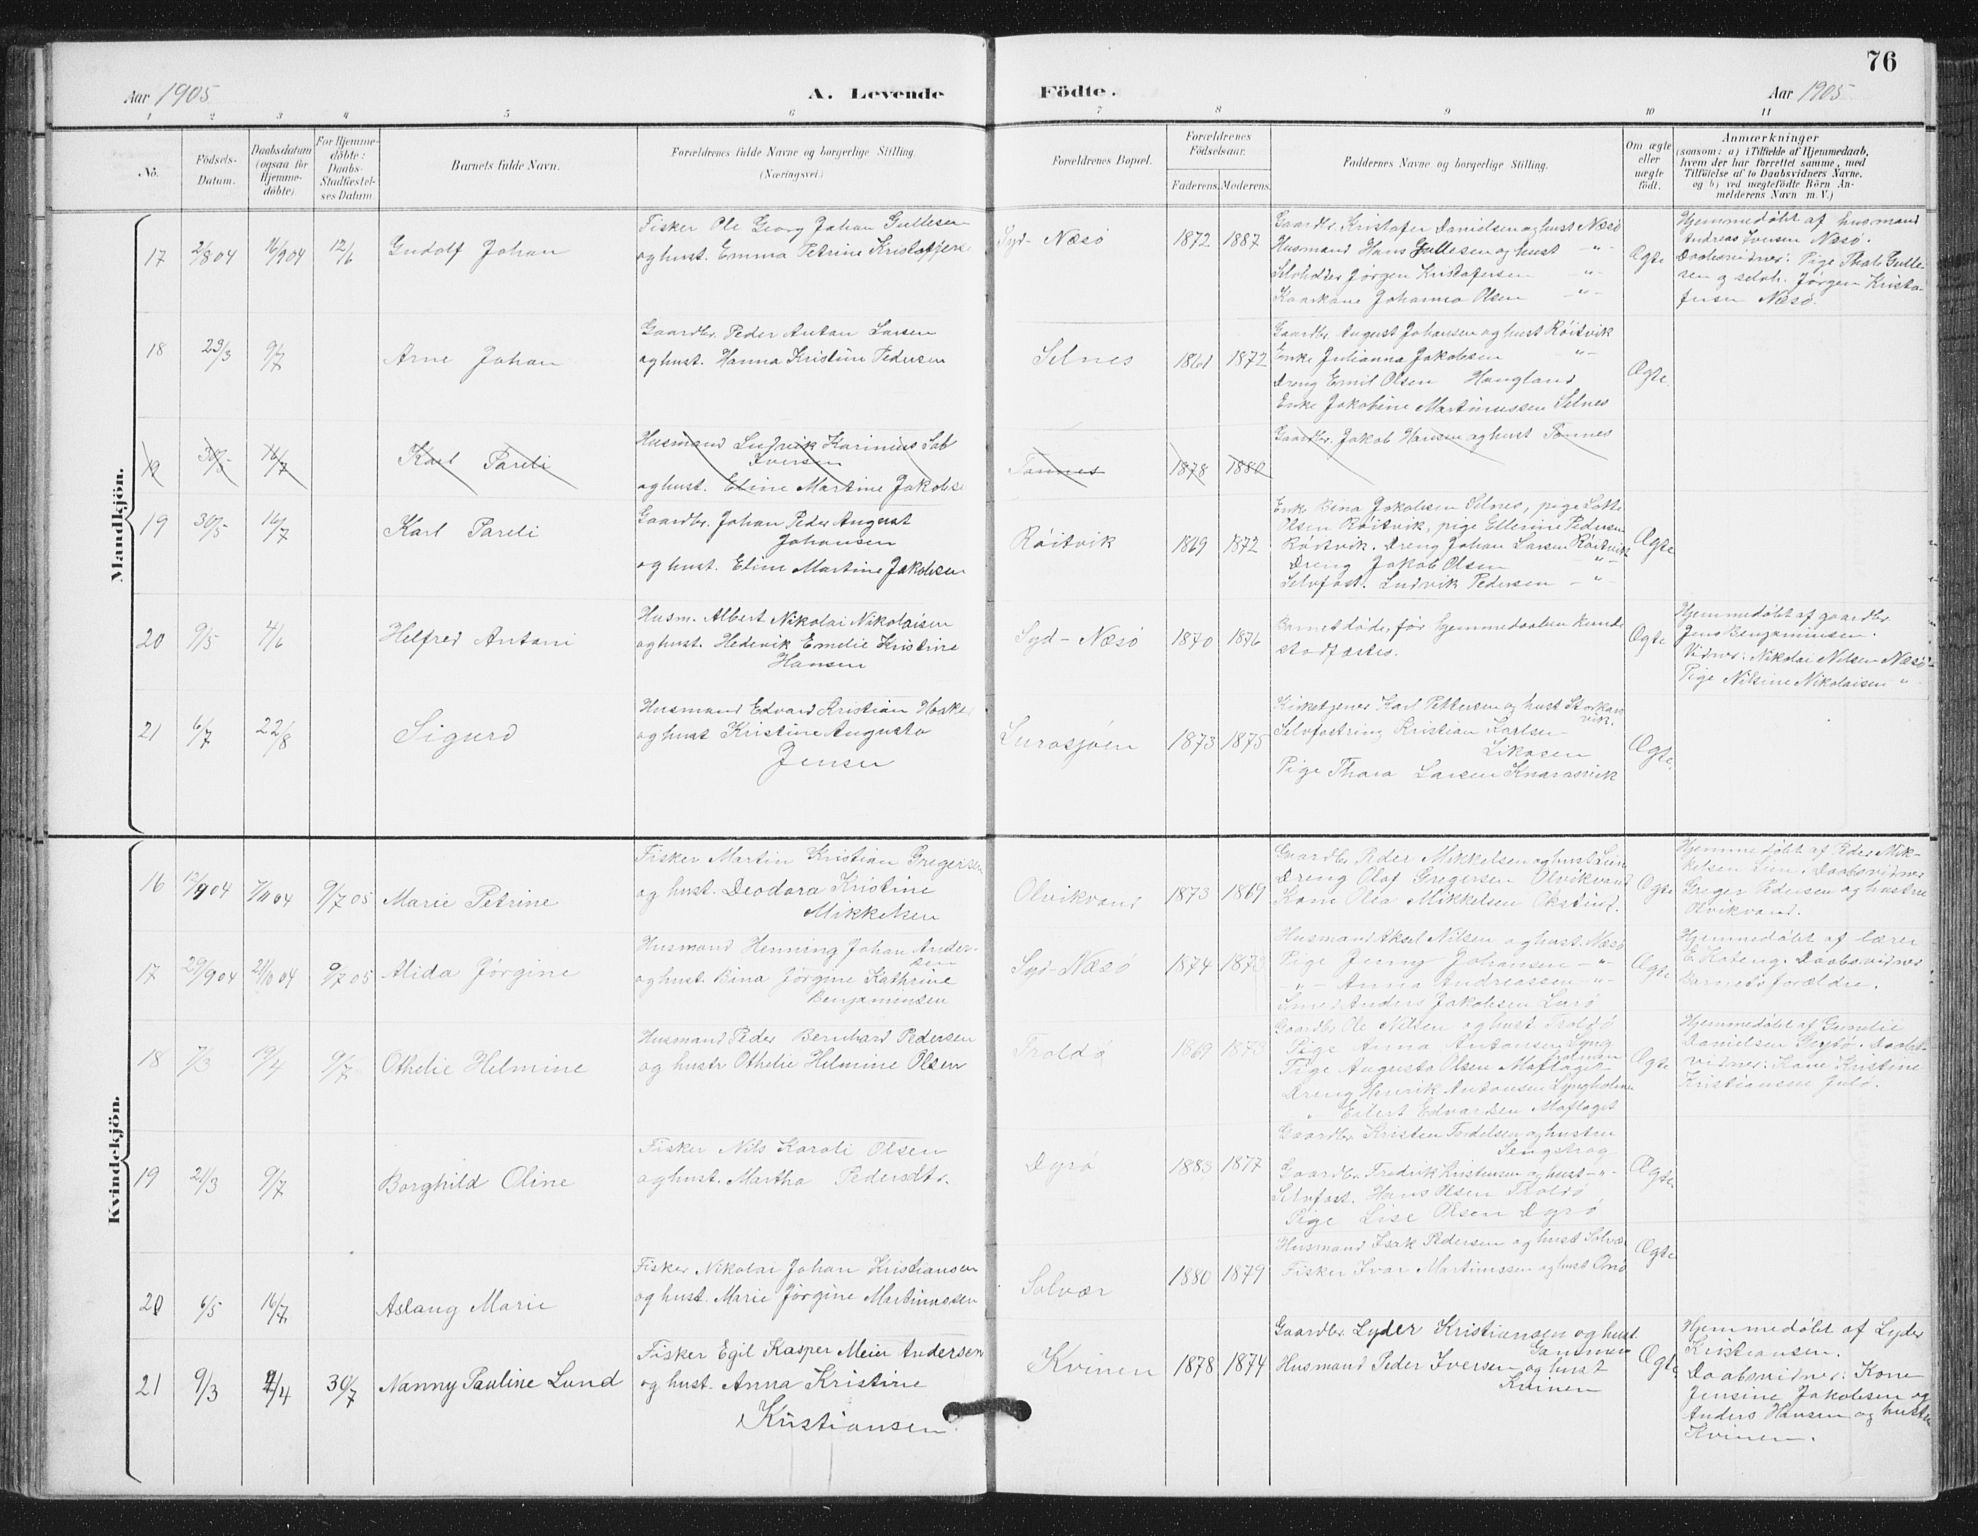 76
Aar 1905
A. Levende
Födte.
Aar 1905
1 2 3 4 5 6 7 8 9 10 11
No.
Födsels-
Datum.
Daabsdatum
(ogsaa for
Hjemme-
döbte)
For Hjemme-
döbte:
Daabs-
Stadfæstel-
ses Datum
Barnets fulde Navn.
Forældrenes fulde Navne og borgerlige Stilling.
(Næringsvei.)
Forældrenes Bopæl.
Forældrenes
Födselsaar.
Faderens.
Moderens.
Faddernes Navne og borgerlige Stilling.
Om ægte
eller
uægte
födt.
Anmærkninger
(saasom: a) i Tilfælde af Hjemmedaab,
hvem der har forrettet samme, med
Tilföielse af to Daabsvidners Navne.
og b) ved uægtefödte Börn An-
melderens Navn m. V.)
Mandkjön.
17 2/8 04 16/9 04 12/6
Gudolf Johan
Fisker Ole Georg Johan Gullesen
og hust. Emma Petrine Kristofferse
Syd-Næsö 1872 1887
Gaardbr. Kristofer Danielsen og hust Næsö
Husmand Hans Gullesen og hust -"-
Selvholder Jörgen Kristofersen -"-
Kaarkone Johanna Olsen -"-
Ægte
Hjemmedöbt af husmand
Andreas Iversen Næsö.
Daabsvidner: Pige Thali Gulle-
sen og selvh. Jörgen Kristo-
fersen Næsö.
18 23/3 9/7
Arne Johan
Gaardbr. Peder Antan Larsen
og hust. Hanna Kristine Pedersen
Selnes 1861 1872
Gaardbr. August Johansen og hust Röitvik
Enke Julianna Jakobsen "-
Dreng Emil Olsen Haugland
Enke Jakobine Martinussen Selnes
Ægte.
19 30/5 16/7
Karl Pareli
Husmand Ludvik Karinius
Iversen
og hust. Eline Martine Jakobse
Tonnes 1878 1880
Gaardbr. Jakob Hansen og hust Tonnes
19 30/5 16/7
Karl Pareli
Gaardbr. Johan Peder August
Johansen
og hust. Eline Martine Jakobsen
Röitvik 1869 1872
Enke Bena Jakobsen Selnes, pige Lotte
Olsen Röitvik, pige Ellerine Pedersen
Röitvik. Dreng Johan Larsen Röitvik
Dreng Jakob Olsen -"-
Selvfost. Ludvik Pedersen -"-
Ægte
20 9/5 4/6
Helfred Antoni
Husm. Albert Nikolai Nikolaisen
og hust. Hedevik Emelie Kristine
Hansen
Syd-Næsö 1870 1876
Barnet döde, för hjemmedaaben kunde
stadfæstes.
Ægte
Hjemmedöbt af gaardbr.
Jens Benjaminsen.
Vidner: Nikolai Nilsen Næsö-
Pige Nilsine Nikolaisen -"-
21 6/7 22/8
Sigurd
Husmand Edvard Kristian
og hust Kristine Augusta
Jensen
Lurosjöen 1873 1875
Kirketjener Karl Pettersen og hust
vik.
Selvfostring Kristian Karlsen
Pige Thora Larsen
Ægte.
Kvindekjön.
16 12/9 04 7/11 04 9/7 05
Marie Petrine
Fisker Martin Kristian Gregersen
og hust. Deodora Kristine
Mikkelsen
Olvikvand 1873 1869
Gaardbr. Peder Mikkelsen og hust Lien
Dreng Olaf Gregersen Olvikvand
Kone Olea Mikkelsen
Ægte
Hjemmedöbt af Peder Mik-
kelsen Lien. Daabsvidner
Greger Pedersen og hustru
Olvikvand.
17 29/9 04 21/10 04 9/7 05
Alida Jörgine
Husmand Henning Johan Ander-
sen
og hust. Bina Jörgine Kathrine
Benjaminsen
Syd-Næsö 1874 1873
Husmand Aksel Nilsen og hust. Næsö
Pige Jenny Johansen -"-
-"- Anna Andreassen -"-
Smed Anders Jakobsen Lurö
Ægte
Hjemmedöbt af lærer
E. Koteng. Daabsvidner
Barnets forældre.
18 7/3 19/4 9/7
Othelie Helmine
Husmand Peder Bernhard Pedersen
og hustr Othelie Helmine Olsen
Troldö 1869 1873
Gaardbr Ole Nilsen og hust Troldö
Pige Anna Antonsen Lyng
holmen
Pige Augusta Olsen Moflaget
Dreng Henrik Antonsen Lyngholmen
" Eilert Edvardsen Moflaget
Ægte
Hjemmedöbt af Gunelie
Danielsen. Daabs-
vidner: Kone Kristine
Kristiansen
19 21/3 9/7
Borghild Oline
Fisker Nils Karoli Olsen
og hust. Martha Pedersdtr.
Dyrö 1883 1877
Gaardbr. Kristen Tordelsen og hustru
Gaardbr. Fredrik Kristensen og hust -"-
Selvfost. Hans Olsen Troldö
Pige Lise Olsen Dyrö
Ægte.
20 6/5 16/7
Aslaug Marie
Fisker Nikolai Johan Kristiansen
og hust. Marie Jörgine Martinussen
Solvær 1880 1879
Husmand Isak Pedersen og hust Selvær
Fisker Ivar Martinussen og hust Onö
Ægte
21 9/3 2/4 30/7
Nanny Pauline Lund
Fisker Egil Kasper Meier Andersen
og hust. Anna Kristine
Kristiansen.
Kvinen 1878 1874
Gaardbr. Lyder Kristiansen og hust.
Husmand Peder Iversen og hust
Kvinen
Ægte
Hjemmedöbt af Lyder
Kristiansen.
Daabsvidner: Kone
Jensine Jakobsen og
Anders Hansen og hustru
Kvinen.